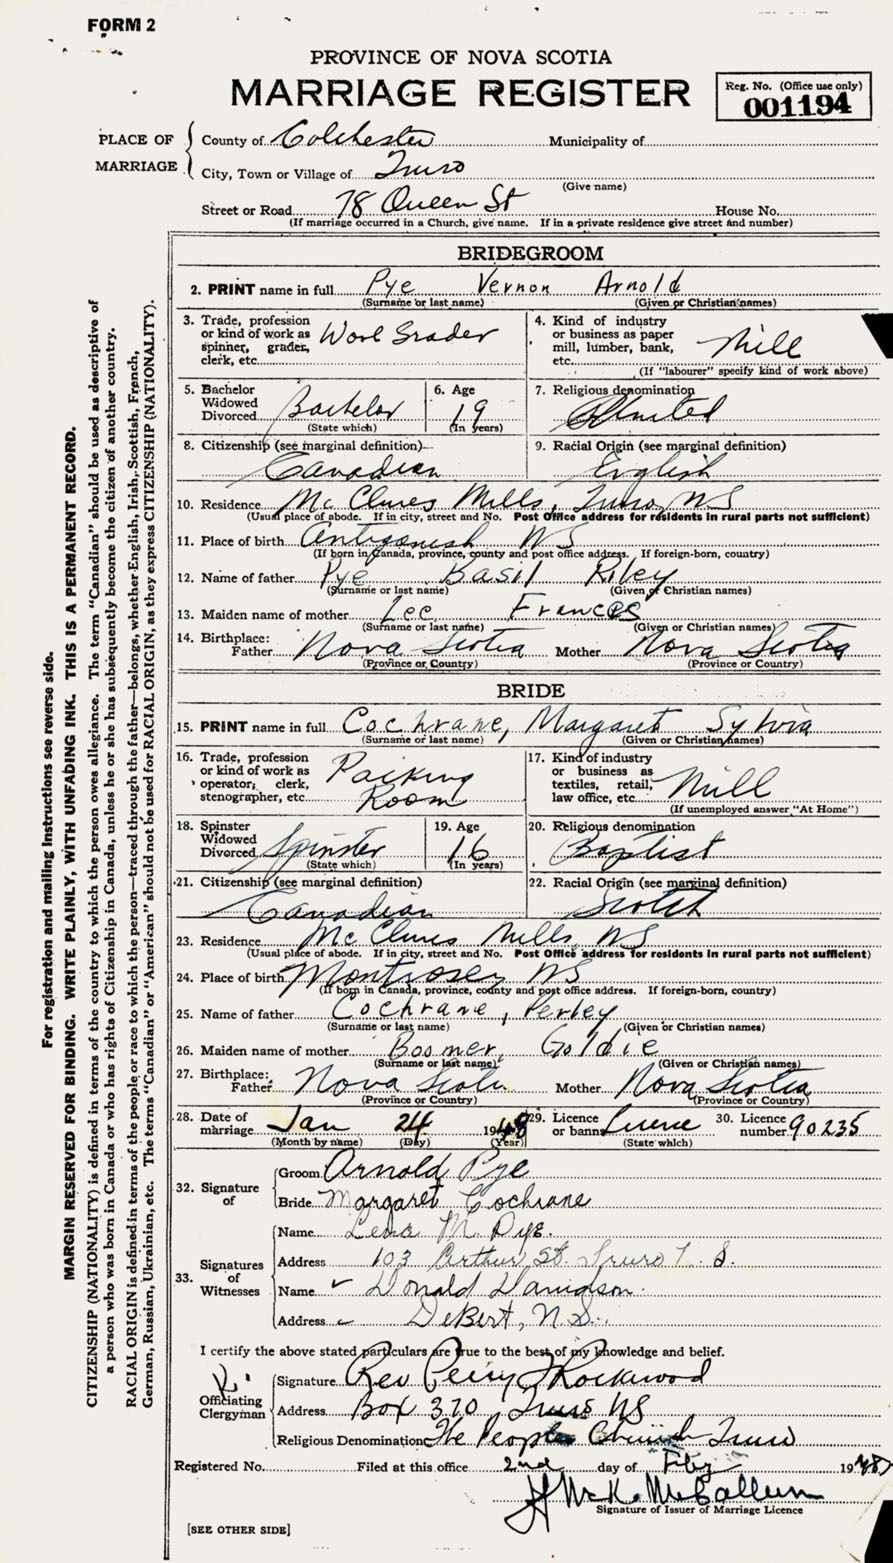 FORM 2
PROVINCE OF NOVA SCOTIA
MARRIAGE REGISTER
Reg. No. (Office use only)
001194
PLACE OF MARRIAGE
County of Colchester Municipality of
City, Town or Village of Truro
(Give name)
Street or Road 78 Queen St House No.
(If marriage occurred in a Church, give name. If in a private residence give street and number)
BRIDEGROOM
2. PRINT name in full Pye Vernon Arnold
(Surname or last name) (Given or Christian names)
3. Trade, profession or kind of work as spinner, grader, clerk, etc. Wool Grader
4. Kind of industry or business as paper mill, lumber, bank, etc. Mill
(If "labourer" specify kind of work above)
5. Bachelor Widowed Divorced Bachelor
(State which)
6. Age 19
(In years)
7. Religious denomination United
8. Citizenship (see marginal definition) Canadian
9. Racial Origin (see marginal definition) English
10. Residence McClures Mills, Truro, NS
(Usual place of abode. If in city, street and No. Post Office address for residents in rural parts not sufficient)
11. Place of birth Antigonish NS
(If born in Canada, province, county and post office address. If foreign-born, country)
12. Name of father Pye Basil Riley
(Surname or last name) (Given or Christian names)
13. Maiden name of mother Lee Frances
(Surname or last name) (Given or Christian names)
14. Birthplace: Father Nova Scotia Mother Nova Scotia
(Province or Country) (Province or Country)
BRIDE
15. PRINT name in full Cochrane, Margaret Sylvia
(Surname or last name) (Given or Christian names)
16. Trade, profession or kind of work as operator, clerk, stenographer, etc. Packing Room
17. Kind of industry or business as textiles, retail, law office, etc. Mill
(If unemployed answer "At Home")
18. Spinster Widowed Divorced Spinster
(State which)
19. Age 16
(In years)
20. Religious denomination Baptist
21. Citizenship (see marginal definition) Canadian
22. Racial Origin (see marginal definition) Scotch
23. Residence McClures Mills, NS
(Usual place of abode. If in city, street and No. Post Office address for residents in rural parts not sufficient)
24. Place of birth Montrose, NS
(If born in Canada, province, county and post office address. If foreign-born, country)
25. Name of father Cochrane, Perley
(Surname or last name) (Given or Christian names)
26. Maiden name of mother Bosmer, Goldie
(Surname or last name) (Given or Christian names)
27. Birthplace: Father Nova Scotia Mother Nova Scotia
(Province or Country) (Province or Country)
28. Date of marriage Jan 24 1948
(Month by name) (Day) (Year)
29. Licence or banns Licence
(State which)
30. Licence number 90235
32. Signature of
Groom Arnold Pye
Bride Margaret Cochrane
33. Signatures of Witnesses
Name Lena M. Pye.
Address 103 Arthur St. Truro N. S.
Name Donald Davidson.
Address DeBert, N.S.
I certify the above stated particulars are true to the best of my knowledge and belief.
Officiating Clergyman
Signature Rev Perry Rockwood
Address Box 370, Truro NS
Religious Denomination The Peoples Church Truro
Registered No. Filed at this office 2nd day of Feby 1948
Signature of Issuer of Marriage Licence
[SEE OTHER SIDE]
For registration and mailing instructions see reverse side.
MARGIN RESERVED FOR BINDING. WRITE PLAINLY, WITH UNFADING INK. THIS IS A PERMANENT RECORD.
CITIZENSHIP (NATIONALITY) is defined in terms of the country to which the person owes allegiance. The term "Canadian" should be used as descriptive of
a person who was born in Canada or who has rights of Citizenship in Canada, unless he or she has subsequently become the citizen of another country.
RACIAL ORIGIN is defined in terms of the people or race to which the person—traced through the father—belongs, whether English, Irish, Scottish, French,
German, Russian, Ukrainian, etc. The terms "Canadian" or "American" should not be used for RACIAL ORIGIN, as they express CITIZENSHIP (NATIONALITY).